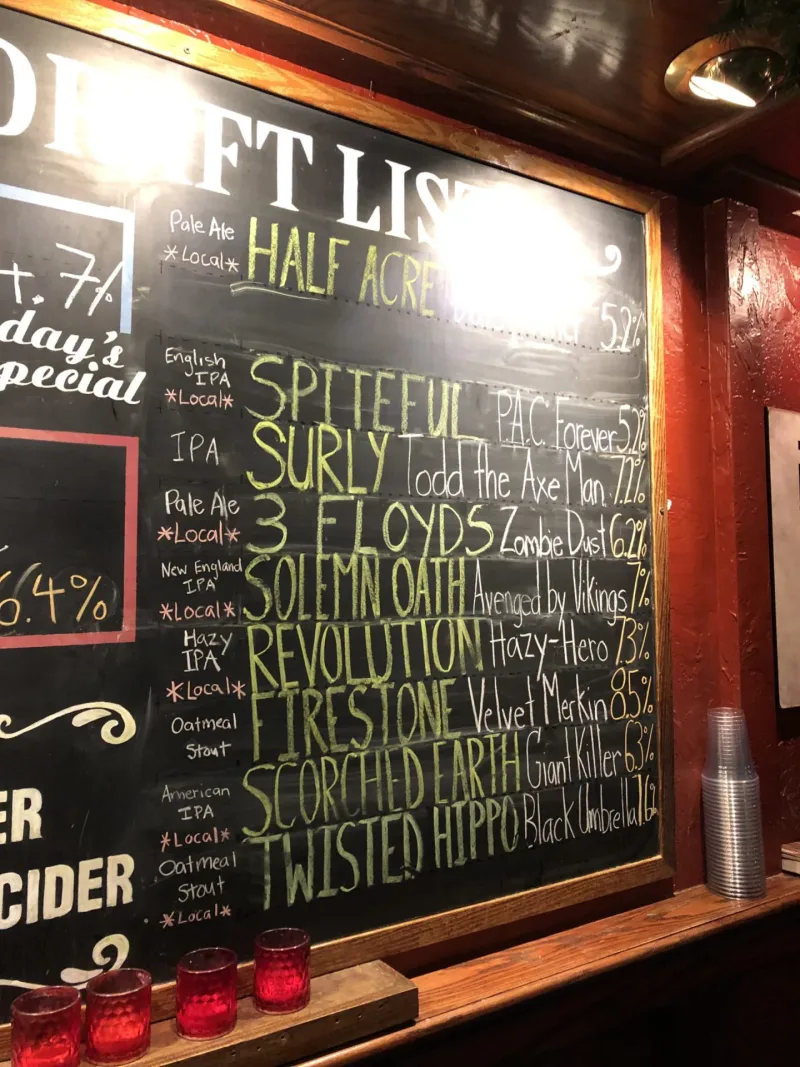 DRAFT LIST
Pale Ale
*Local*
HALF ACRE 5.2%
English
IPA
*Local*
SPITEFUL P.A.C. Forever 5.2%
IPA
SURLY Todd the Axe Man 7.2%
Pale Ale
*Local*
3 FLOYDS Zombie Dust 6.2%
New England
IPA
*Local*
SOLEMN OATH Avenged by Vikings 7%
Hazy
IPA
*Local*
REVOLUTION Hazy-Hero 7.3%
Oatmeal
Stout
FIRESTONE Velvet Merkin 8.5%
American
IPA
*Local*
SCORCHED EARTH Giant Killer 6.3%
Oatmeal
Stout
*Local*
TWISTED HIPPO Black Umbrella 7.6%
t. 7%
day's
pecial
6.4%
ER
CIDER